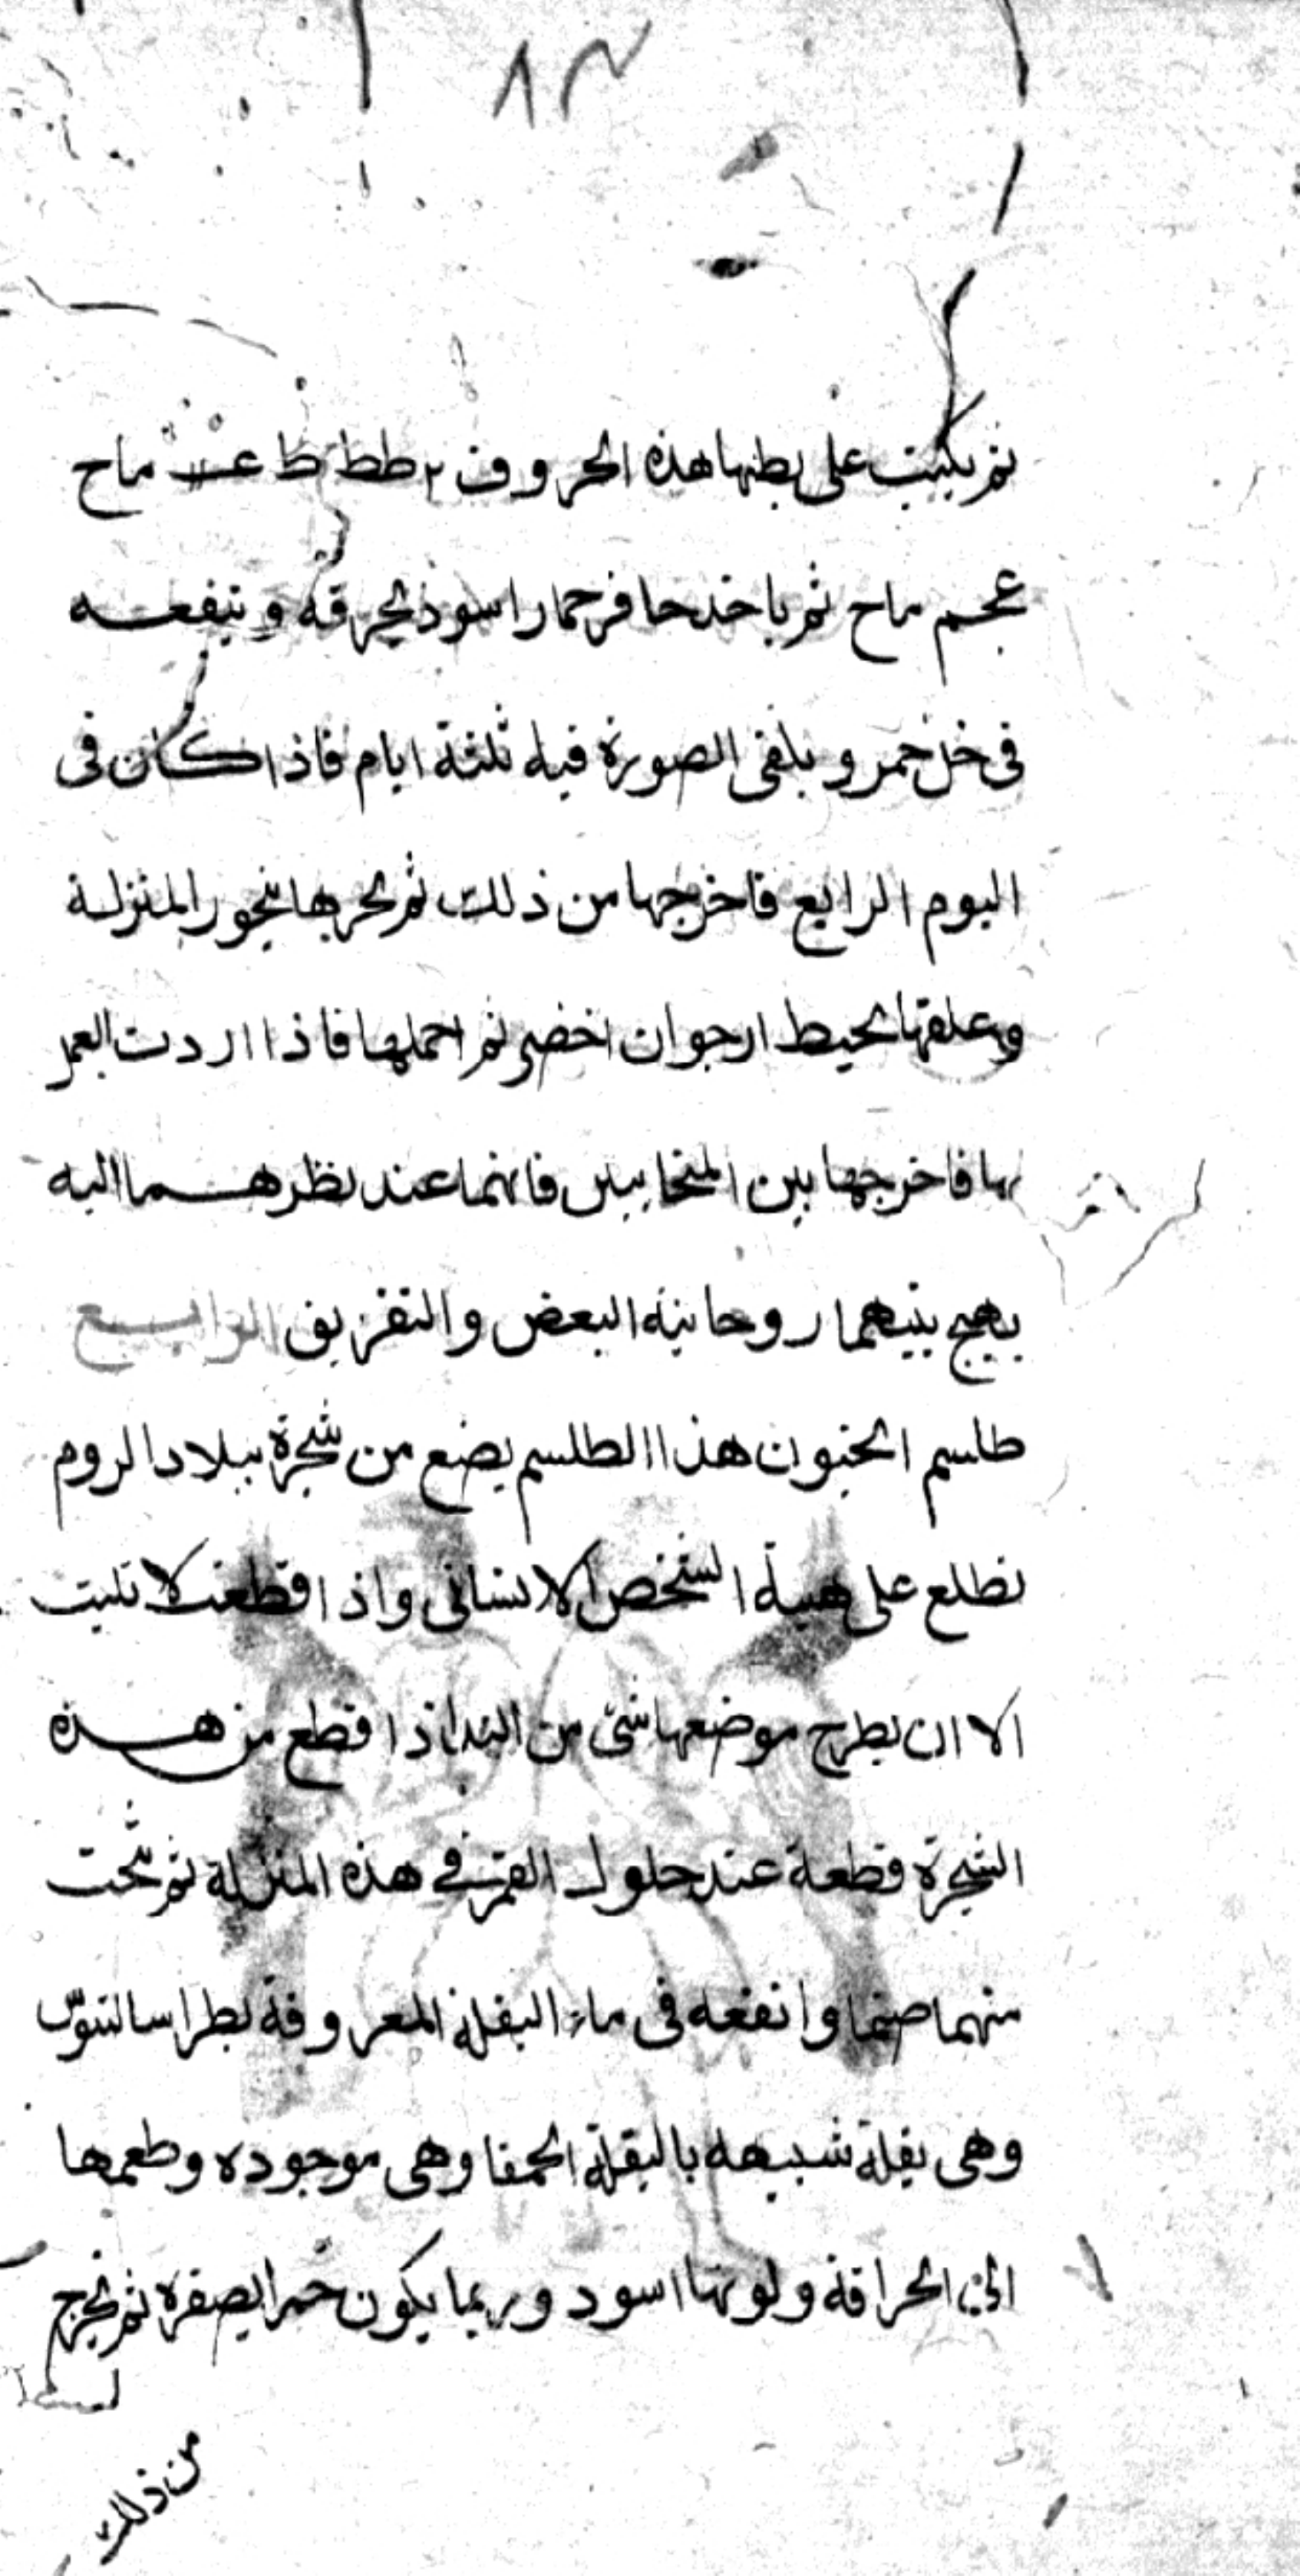 ٨٣
ثم يكتب على بطنها هذه الحروف ططط ماح
عجم ماح ثم ياخذ حافر حمار اسود يحرقه وينقعه
فى خل خمر ويلقى الصورة فيه ثلثة ايام فاذا كان فى
اليوم الرابع فاخرجها من ذلك ثم بخرها ببخور المنزلة
وعلقها بخيط ارجوان اخضر ثم احملها فاذا اردت العمل
بها فاخرجها بين المتحابين فانهما عند نظرهما اليه
يهيج بينهما روحانية البغض والتفريق الرابع
طلسم الجنون هذا الطلسم يصنع من شجرة ببلاد الروم
تطلع على هيبة الشخص الانسانى واذا قطعت لا تنبت
الا ان يطرح موضعها شئ من اذا قطع من هذه
الشجرة قطعة عند حلول القمر فى هذه المنزلة ثم نحت
منهما صنما وانقعه فى ماء البقلة المعروفة
وهى بقلة شبيهه بالبقلة الحمقا وهى موجوده وطعمها
الى الحرافة ولونها اسود وربما يكون ثم يخرج
من ذلك